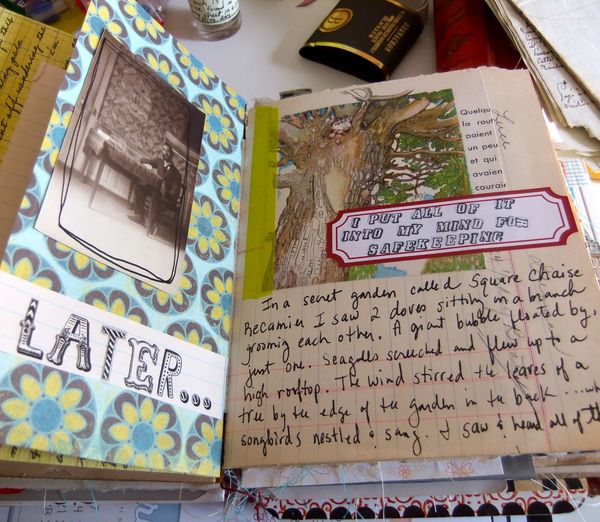 LATER...
Quelqu
la rout
baient
un peu
et qui
avaien
courair
Luce
I PUT ALL OF IT
INTO MY MIND FOR
SAFEKEEPING
In a secret garden called Square Chaise
Recamier I saw 2 doves sitting in a branch
groomig each other. A giant bubble floated by,
just one. Seagulls screeched and flew up to a
high rooftop. The wind stirred the leaves of a
tree by the edge of the garden in the back...wh
songbirds nestled & sang. I saw & heard all of th